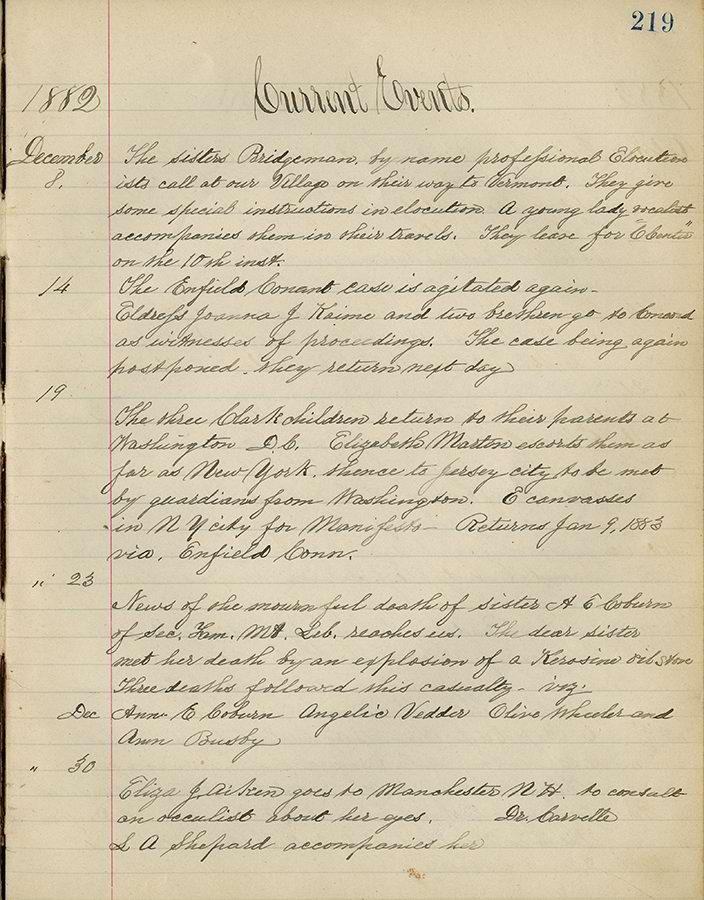 219
1882 Current Events.
December The sisters Bridgeman, by name professional Elocution
8. ists call at our Village on their way to Vermont. They give
some special instructions in elocution. A young lady vocalist
accompanies them in their travels. They leave for "E Center"
on the 10th inst.
14 The Enfield Conant case is agitated again -
Eldress Joanna J Kaime and two brethren go to Concord
as witnesses of proceedings. The case being again
postponed, they return next day
19
The three Clark children return to their parents at
Washington D.C. Elizabeth Martin escorts them as
far as New York, thence to Jersey city to be met
by guardians from Washington. E canvasses
in N Y city for Manifesto - Returns Jan 9, 1883
via. Enfield Conn.
" 23
News of the mournful death of sister A E Coburn
of Sec. Fam. Mt. Leb. reaches us. The dear sister
met her death by an explosion of a Kerosine oil stove
Three deaths followed this casualty - viz.
Dec Ann E Coburn Angelic Vedder Olive Wheeler and
Ann Busby
" 30
Eliza J. Aiken goes to Manchester N H. to consult
an occulist about her eyes. Dr. Carvelle
L A Shepard accompanies her